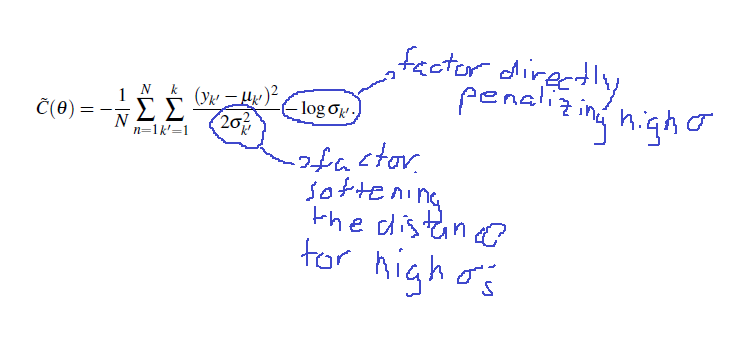 C̃(θ) = −\frac{1}{N} \sum_{n=1}^{N} \sum_{k'=1}^{k} \frac{(y_{k'} − μ_{k'})^2}{2σ_{k'}^2} − log σ_{k'}.
factor directly
penalizing high σ
factor.
softening
the distance
for high σ's